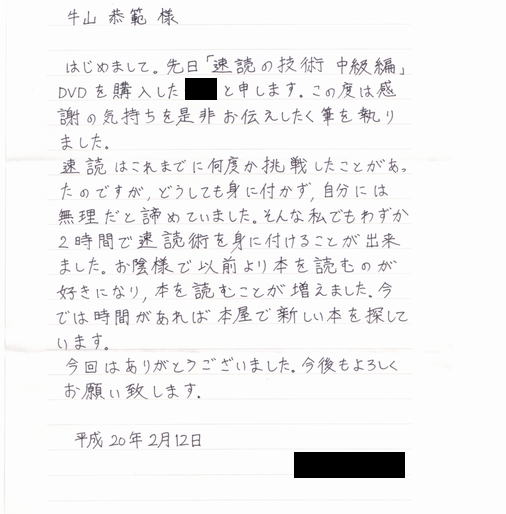 牛山 恭範 様
はじめまして。先日「速読の技術 中級編」
DVDを購入した と申します。この度は感
謝の気持ちを是非お伝えしたく筆を執り
ました。
速読はこれまでに何度か挑戦したことがあっ
たのですが、どうしても身に付かず、自分には
無理だと諦めていました。そんな私でもわずか
2時間で速読術を身に付けることが出来
ました。お陰様で以前より本を読むのが
好きになり、本を読むことが増えました。今
では時間があれば本屋で新しい本を探して
います。
今回はありがとうございました。今後もよろしく
お願い致します。
平成20年2月12日